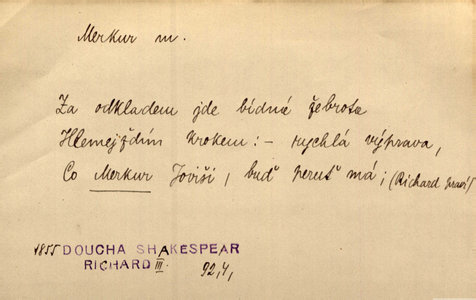 Merkur m.
Za odkladem jde bídná žebrota
Hlemejždím krokem: – rychlá výprava,
Co Merkur Joviši, buď peruť má; (Richard praví)
1855 DOUCHA SHAKESPEAR
RICHARD III. 92,4,